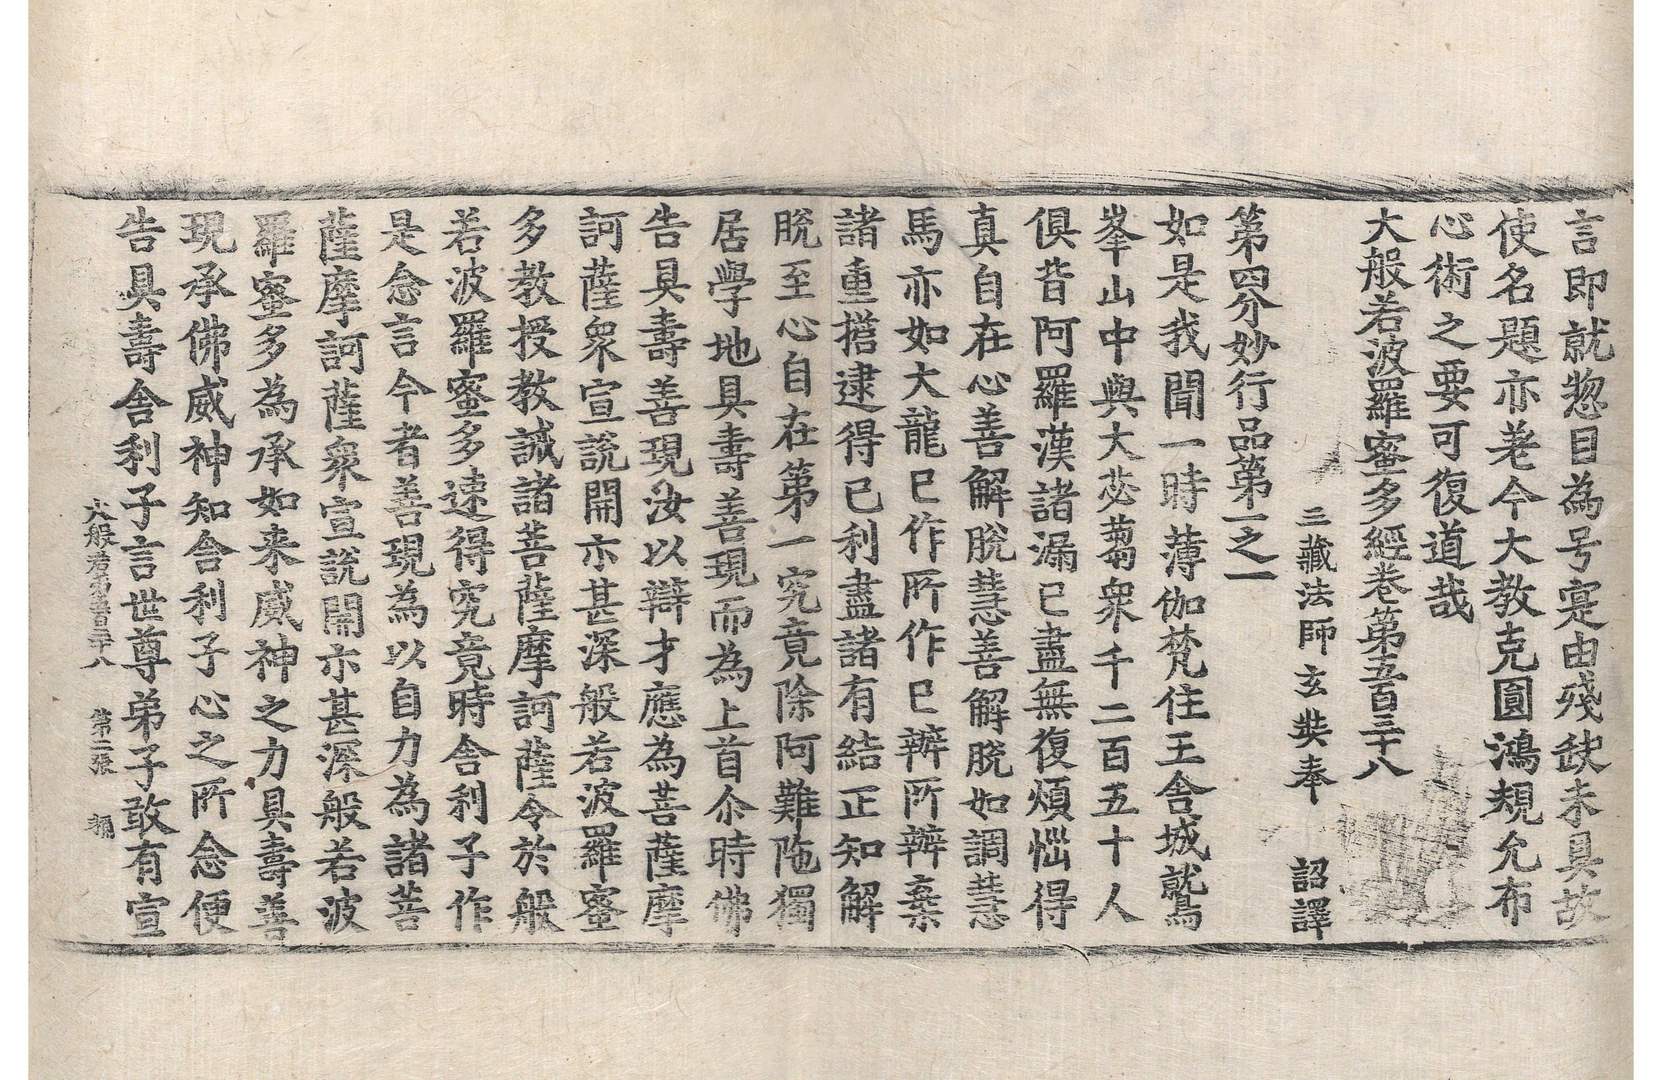 言即就惣目為号寔由殘缺未具故
使名題亦差今大教克圓鴻規允布
心術之要可復道哉
大般若波羅蜜多經卷第五百三十八
三藏法師玄奘奉 詔譯
第四分妙行品第一之一
如是我聞一時薄伽梵住王舍城鷲
峯山中與大苾蒭衆千二百五十人
俱皆阿羅漢諸漏已盡無復煩惱得
真自在心善解脫慧善解脫如調慧
馬亦如大龍已作所作已辦所辦棄
諸重擔逮得己利盡諸有結正知解
脫至心自在第一究竟除阿難陁獨
居學地具壽善現而為上首尒時佛
告具壽善現汝以辯才應為菩薩摩
訶薩衆宣說開示甚深般若波羅蜜
多教授教誡諸菩薩摩訶薩令於般
若波羅蜜多速得究竟時舍利子作
是念言今者善現為以自力為諸菩
薩摩訶薩衆宣說開示甚深般若波
羅蜜多為承如来威神之力具壽善
現承佛威神知舍利子心之所念便
告具壽舍利子言世尊弟子敢有宣
大般若第五百三十八 第二張